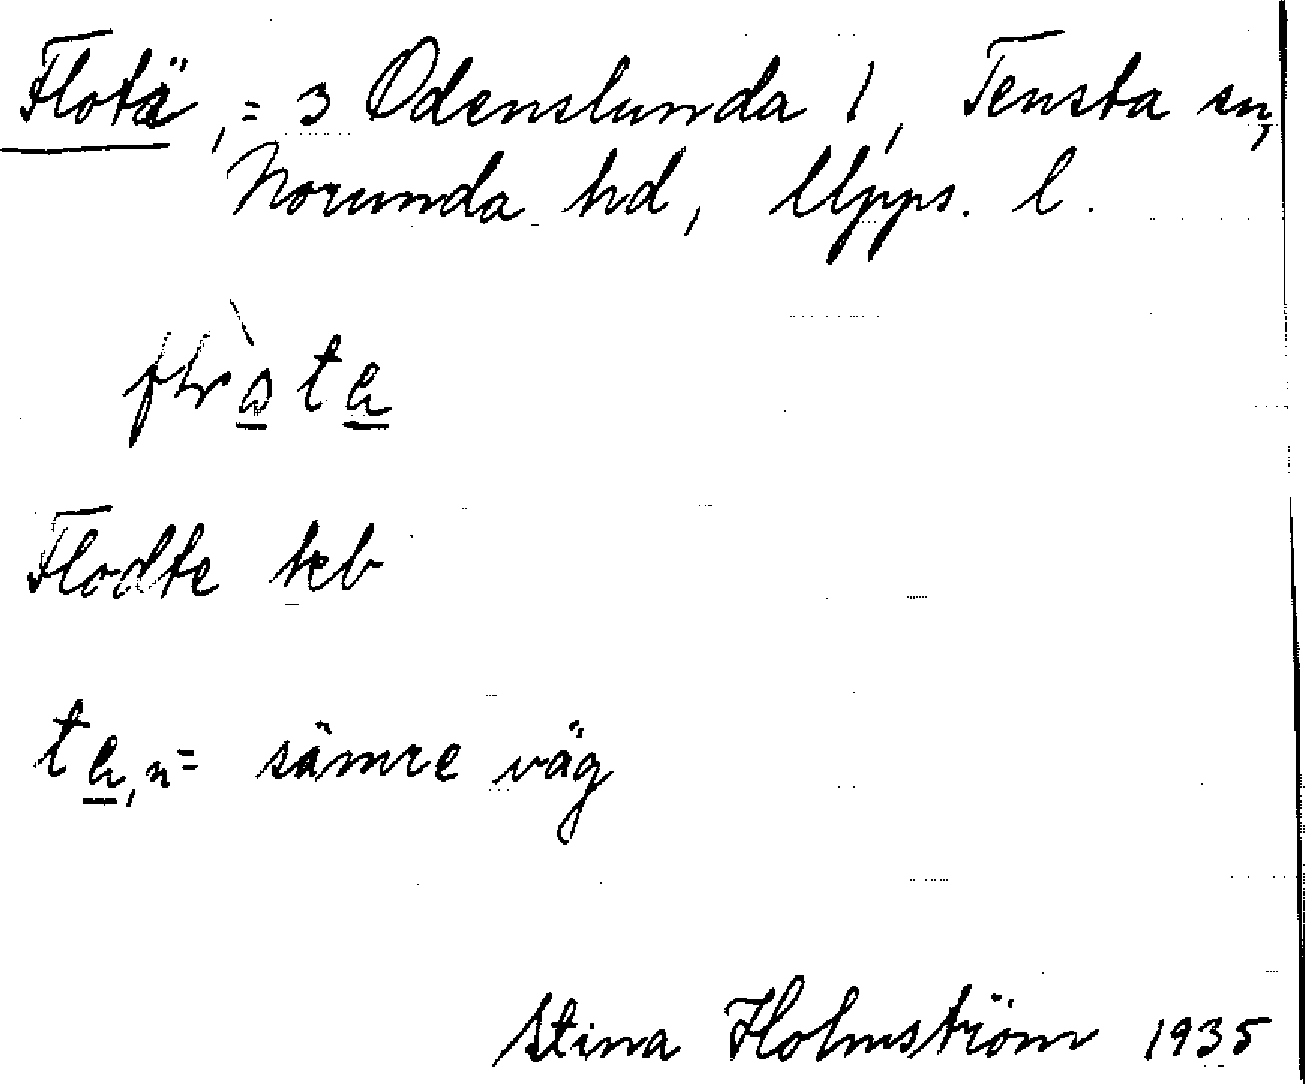 Flotä, = 3 Odenslunda 1, Tensta sn,
Norunda hd, Upps. l.
Flodte kb
tä, n = sämre väg
Stina Holmström 1935